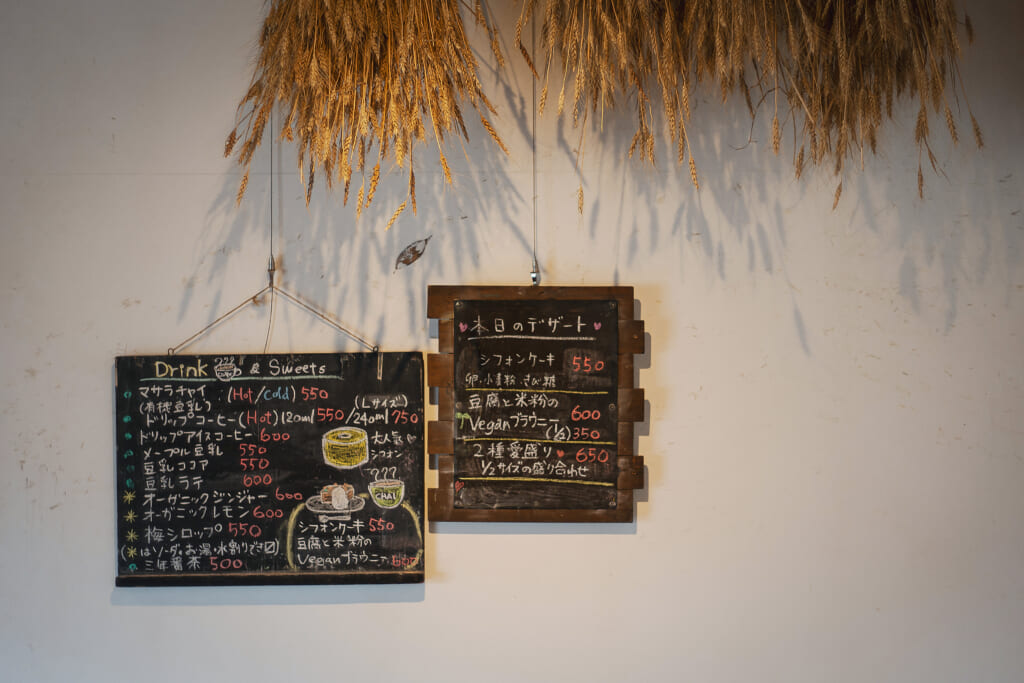 Drink & Sweets
マサラチャイ (Hot/Cold) 550
(有機豆乳)
(Lサイズ)
ドリップコーヒー(Hot)120ml/550/240ml/750
ドリップアイスコーヒー 600
メープル豆乳 550
豆乳ココア 550
豆乳ラテ 600
オーガニックジンジャー 600
オーガニックレモン 600
梅シロップ 550
(※はソーダ。お湯・水割りできます)
三年番茶 500
大人気♡
シフォン
CHAI
シフォンケーキ 550
豆腐と米粉の
Veganブラウニー 600
♥本日のデザート♥
シフォンケーキ 550
卵・小麦粉・きび糖
豆腐と米粉の
Veganブラウニー 600
(1/2)350
2種愛盛り♥ 650
1/2サイズの盛り合わせ